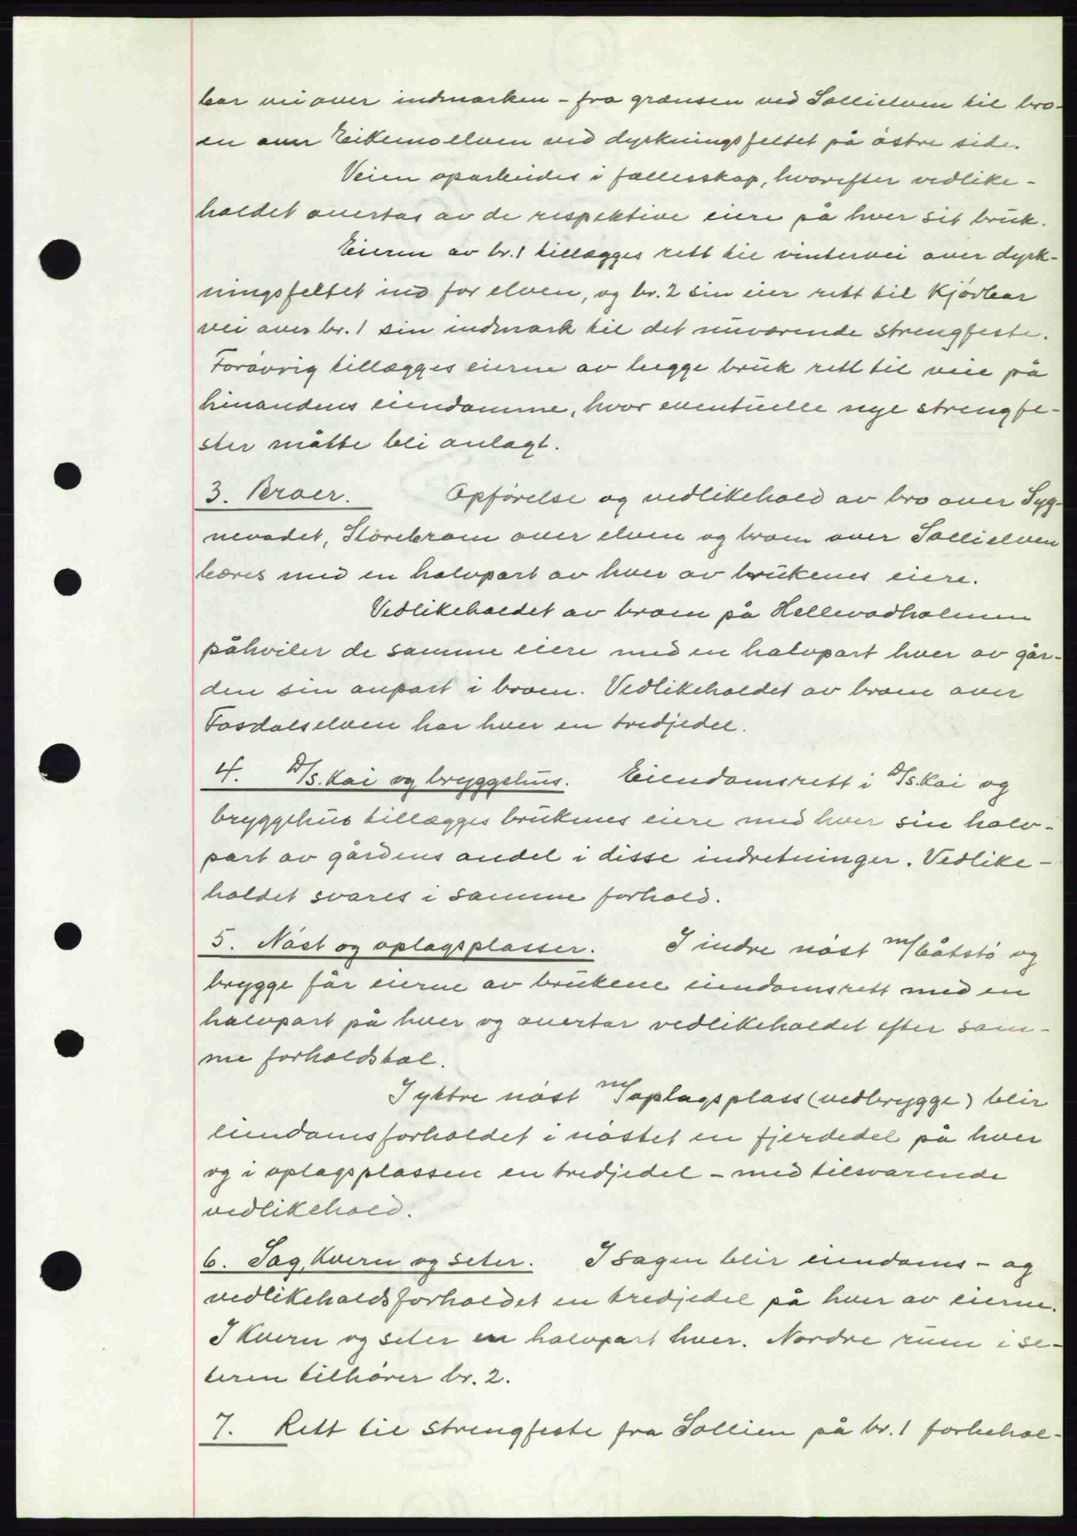 bar vei over indmarken - fra grænsen ved Sollielven til bro-
en over Eikemoelven ved dyrkningsfeltet på östre side.
Veien oparbeides i fællesskap, hvorefter vedlike-
holdet overtas av de respektive eiere på hver sit bruk.
Eieren av br. 1 tillægges rett til vintervei over dyrk-
ningsfeltet ind for elven, og br. 2 sin eier rett til kjörbar
vei over br. 1 sin indmark til det nuværende strengfeste.
Forövrig tillægges eierne av begge bruk rett til veie på
hinandens eiendomme, hvor eventuelle nye strengfe-
ster måtte bli anlagt.
3. Broer. Opförelse og vedlikehold av bro over Syg-
nevadet, Storebroen over elven og broen over Sollielven
bæres med en halvpart av hver av brukenes eiere.
Vedlikeholdet av broen på Hellevadholmen
påhviler de samme eiere med en halvpart hver av går-
den sin anpart i broen. Vedlikeholdet av broen over
Fosdalselven har hver en tredjedel.
4. D/S. Kai og bryggehus. Eiendomsrett i D/S. Kai og
bryggehus tillægges brukenes eiere med hver sin halv-
part av gårdens andel i disse indretninger. Vedlike-
holdet svares i samme forhold.
5. Nöst og oplagsplasser. I indre nöst m/båtstö og
brygge får eierne av brukene eiendomsrett med en
halvpart på hver og overtar vedlikeholdet efter sam-
me forholdstal.
I yttre nöst m/oplagsplass (vedbrygge) blir
eiendomsforholdet i nöstet en fjerdedel på hver
og i oplagsplassen en tredjedel - med tilsvarende
vedlikehold.
6. Sag, Kvern og seter. I sagen blir eiendoms- og
vedlikeholdsforholdet en tredjedel på hver av eierne.
I Kvern og seter en halvpart hver. Nordre rum i se-
teren tilhörer br. 2.
7. Rett til strengfeste fra Sollien på br. 1 forbehol-